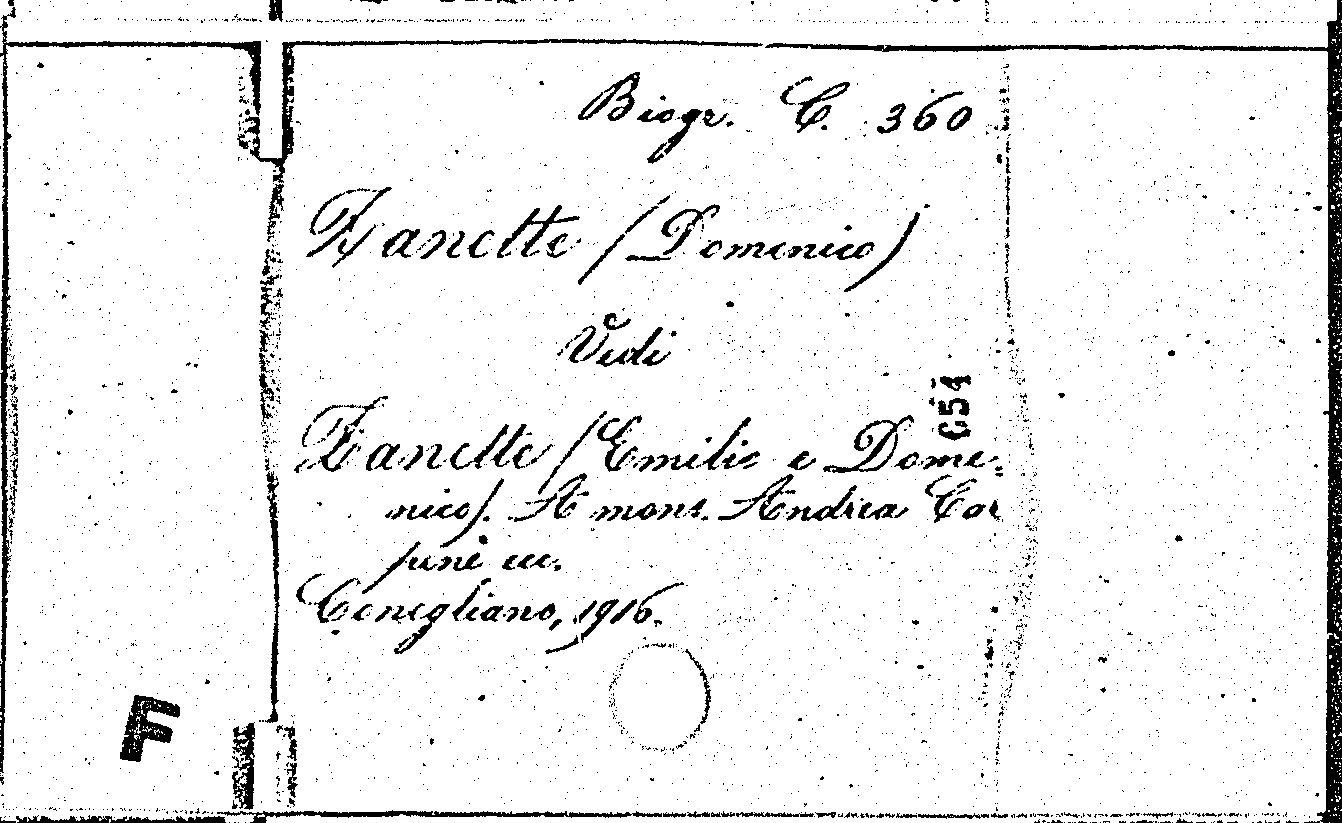 Biogr. C. 360
Zanette (Domenico)
Vedi
G54
Zanette (Emilio e Dome-
nico). A mons. Andrea Car
penè ecc.
Conegliano, 1916.
F